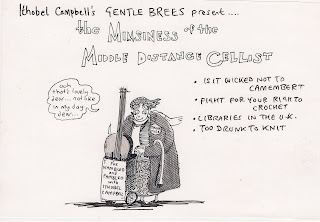 Ithobel Campbell's GENTLE BREES present....
the MIMSINESS of the
MIDDLE DISTANCE CELLIST
ooh
that's lovely
dear... not like
in my day,
dear...
• IS IT WICKED NOT TO
CAMEMBERT
• FIGHT FOR YOUR RIGHT TO
CROCHET
• LIBRARIES IN THE U.K.
• TOO DRUNK TO KNIT
For
and
RAMBLERS
with
ITHOBEL
CAMPBELL